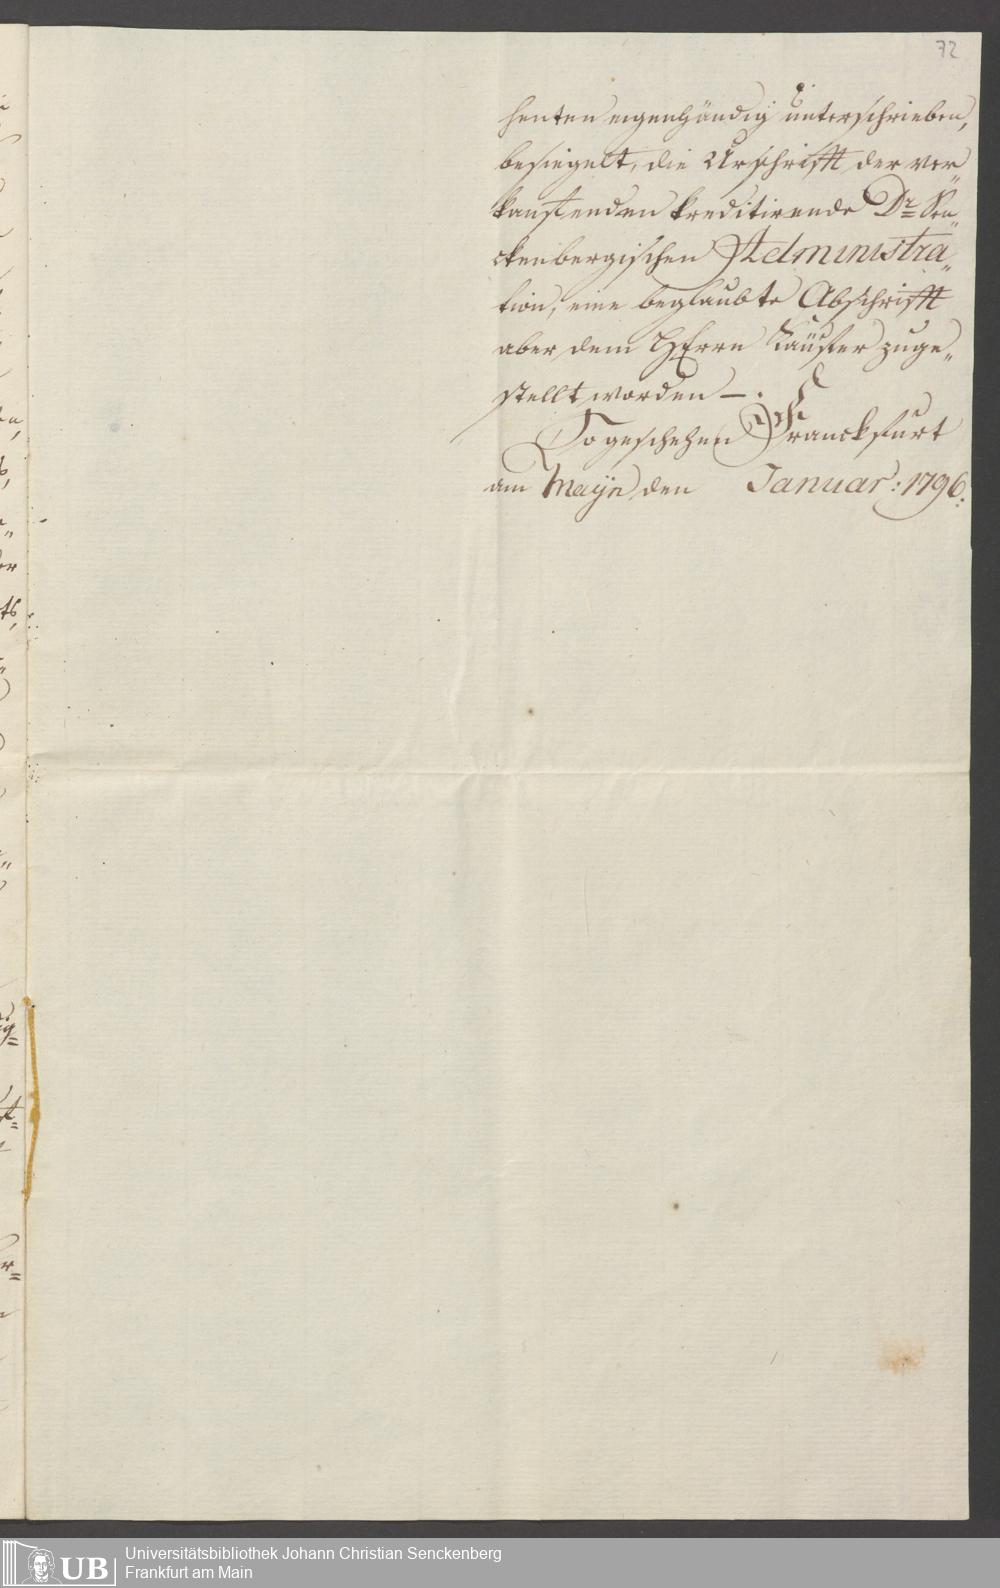 72
henten eigenhändig unterschrieben,
besiegelt, die Urschrifft der ver„
kauffenden kreditirende Dr Sen„
ckenbergischen Administra„
tion, eine beglaubte Abschrifft
aber dem HErrn Käufer zuge„
stellt worden —.
So geschehen Franckfurt
am Mayn den Januar: 1796.
UB
Universitätsbibliothek Johann Christian Senckenberg
Frankfurt am Main